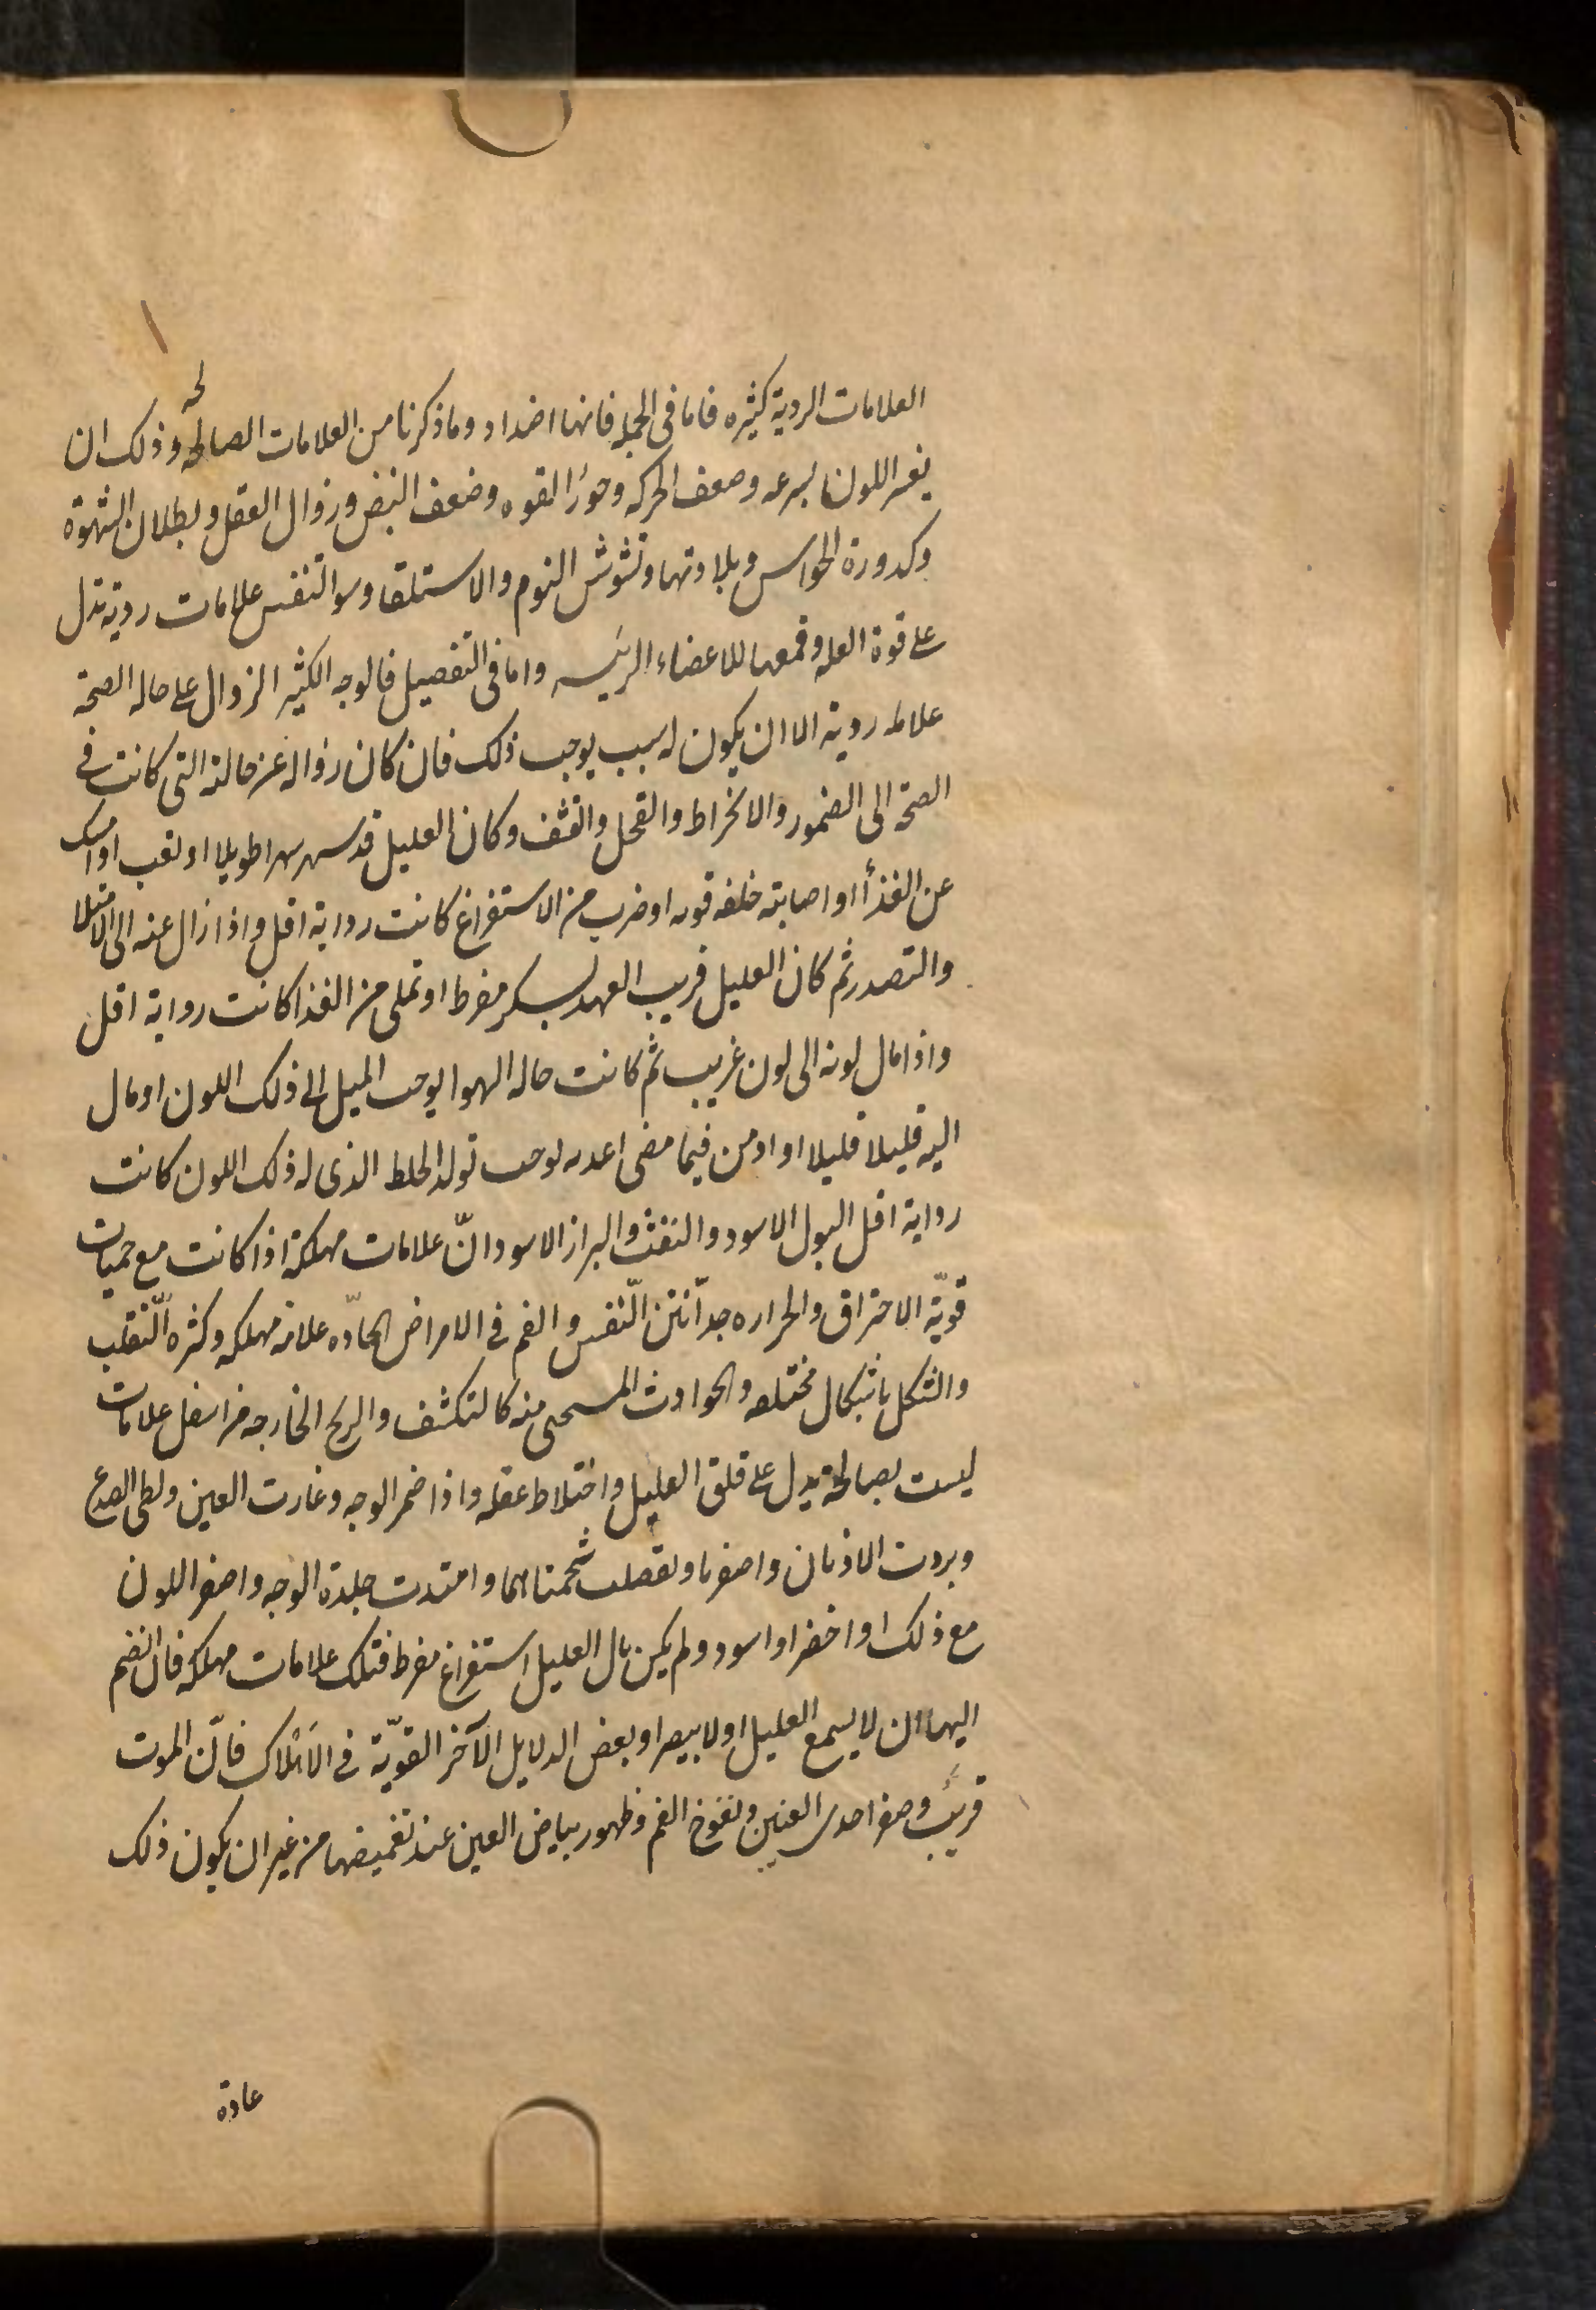 العلامات الردية كثيره فاما فى الجمله فانها اضداد وما ذكرنا من العلامات الصالحه وذلك ان
اللون بسرعه وضعف الحركه القوه وضعف النبض وزوال العقل وبطلان الشهوة
وكدورة الحواس وبلادتها وتشوش النوم والاستلقا وسو التنفس علامات ردية تدل
على قوة العله وقمعها للاعضاء الرئيسه واما فى التفصيل فالوجه الكثير الزوال على حاله الصحة
علامه ردية الا ان يكون له سبب يوجب ذلك فان كان زواله عن حالته التى كانت فى
الصحة الى الضمور والانخراط والقحل والقشف وكان العليل قد سهر سهرا طويلا او تعب او امسك
عن الغذا او اصابته خلفه قويه او ضرب من الاستفراغ كانت رداية اقل واذا زال عنه الى الامتلا
والتصدر ثم كان العليل قريب العهد بسكر مفرط او تملى من الغذا كانت رداية اقل
واذا مال لونه الى لون غريب ثم كانت حاله الهوا يوجب الميل الى ذلك اللون او مال
اليه قليلا قليلا او ادمن فيما مضى اغديه يوجب تولد الخلط الذى له ذلك اللون كانت
رداية اقل البول الاسود والنفث والبراز الاسود انّ علامات مهلكة اذا كانت مع حميات
قويّة الاحتراق والحراره جدا نتن النّفس والفم فى الامراض الحادّه علامة مهلكه وكثره التّقلب
والتشكل باشكال مختلفه والحوادث المستحيى منه كالتكشف والريح الخارجه من اسفل علامات
ليست بصالحة يدل على قلق العليل واختلاط عقله واذا ضمر الوجه وغارت العين ولطى الصدع
وبردت الاذنان واصفرتا وتقلصت شحمتاهما وامتدت جلدة الوجه واصفر اللون
مع ذلك او اخضر او اسود ولم يكن بال العليل استفراغ مفرط فتلك علامات مهلكه فان انضم
اليها ان لا يسمع العليل او لا يبصر او بعض الدلايل الآخر القويّة فى الاهلاك فانّ الموت
قريب وصغر احدى العينين الفم وظهور بياض العين عند تغميضها من غير ان يكون ذلك
عادة